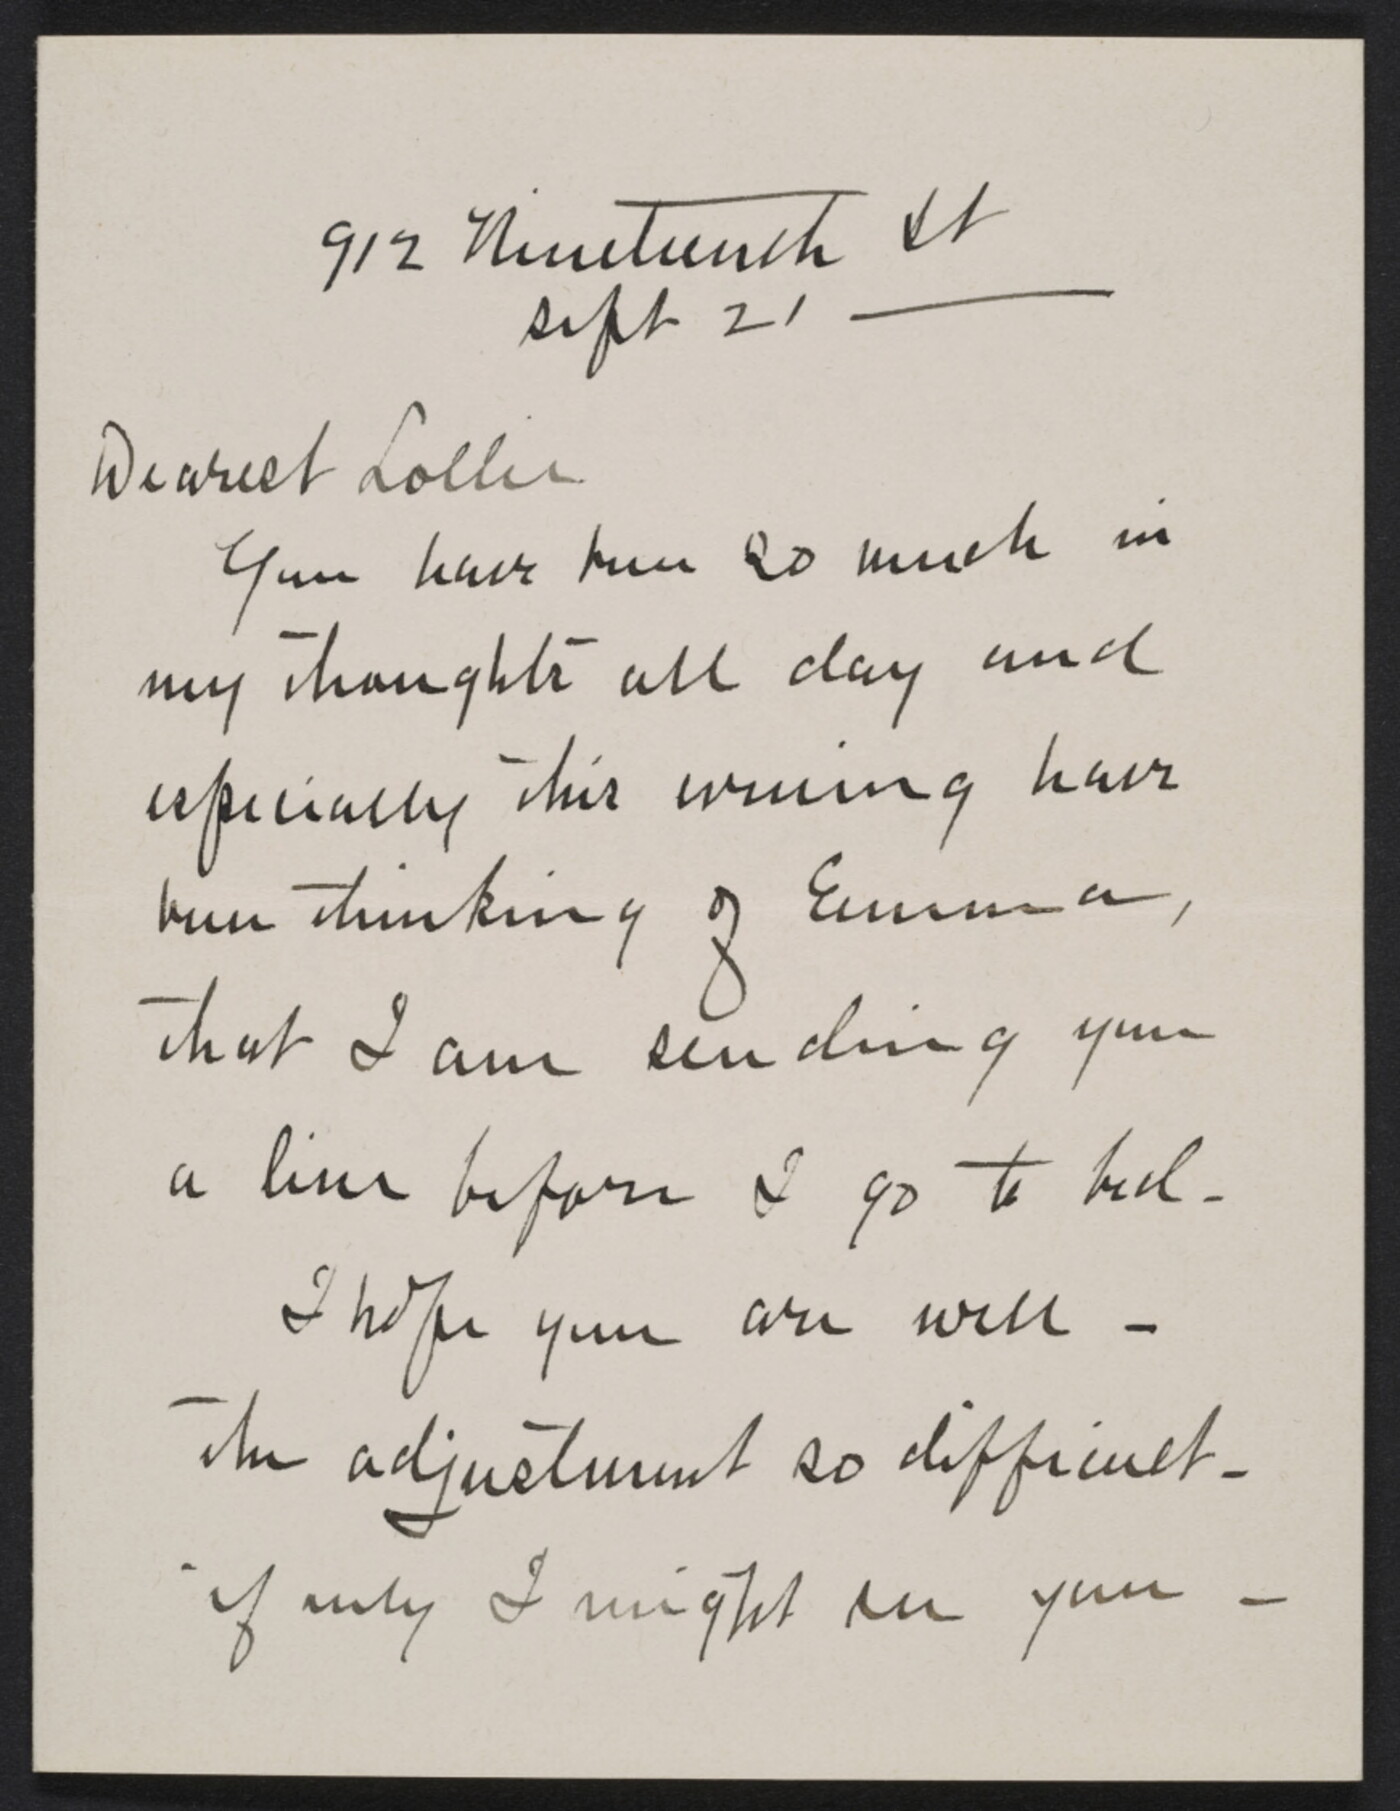 912 Nineteenth St
Sept 21 —
Dearest Lollie
You have been so much in
my thoughts all day and
especially this evening have
been thinking of Emma,
that I am sending you
a line before I go to bed -
I hope you are well -
the adjustment so difficult -
if only I might see you -